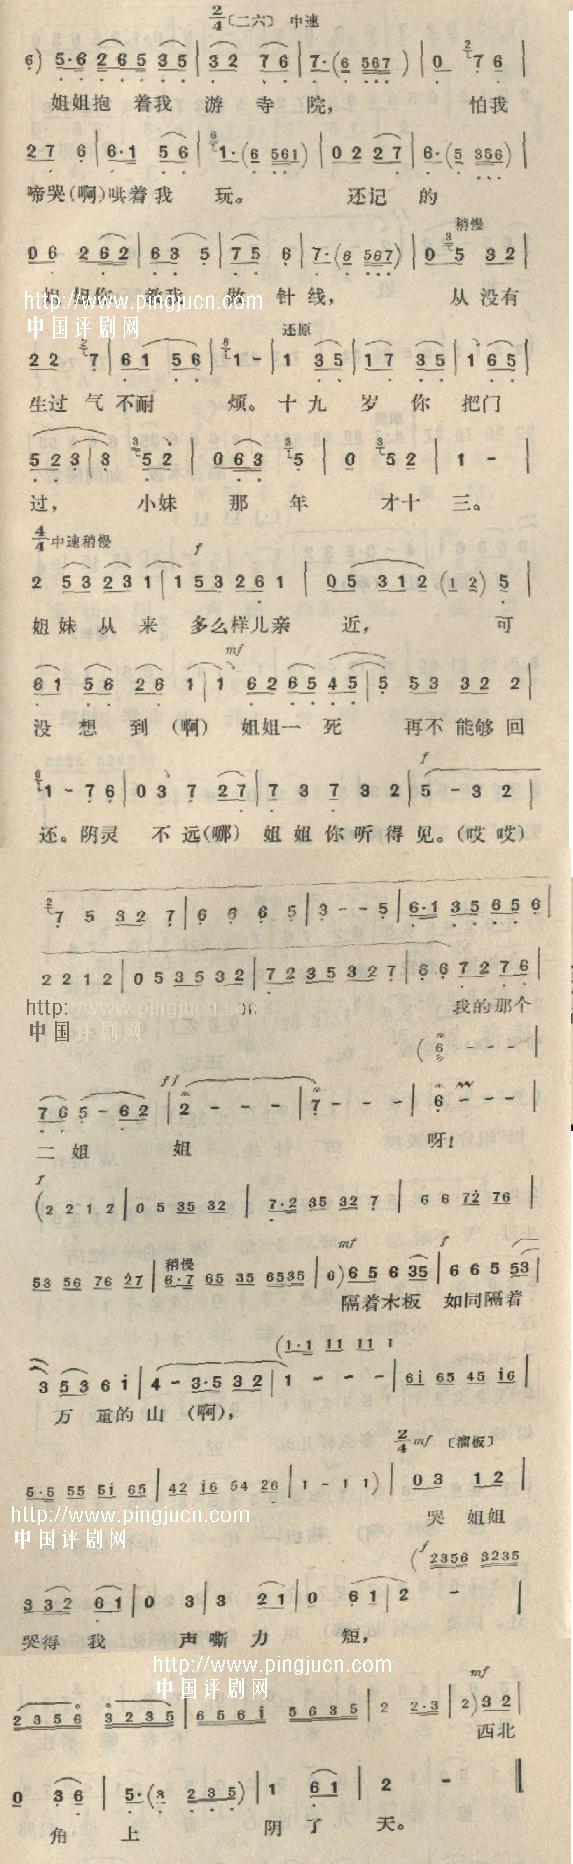 2/4〔二六〕 中速
6) 5·6 2 6 5 3 5 | 3 2 7 6 | 7·(6 5 6 7) | 0 7 6 |
姐姐抱 着我 游 寺 院， 怕我
2 7 6 | 6·1 5 6 | 1·(6 5 6 1) | 0 2 2 7 | 6·(5 3 5 6) |
啼哭(啊)哄着我 玩。 还记 的
稍慢
0 6 2 6 2 | 6 3 5 | 7 5 6 | 7·(6 5 6 7) | 0 5 3 2 |
针 线， 从 没有
http://www.pingjucn.com
中国评剧网
还原
2 2 7 | 6 1 5 6 | 1 - | 1 3 5 | 1 7 3 5 | 1 6 5 |
生过 气 不耐 烦。 十 九 岁 你 把门
5 2 3 | 3 5 2 | 0 6 3 5 | 0 5 2 | 1 - |
过， 小妹 那 年 才十 三。
4/4 中速稍慢 f
2 5 3 2 3 1 | 1 5 3 2 6 1 | 0 5 3 1 2 (1 2) 5 |
姐 妹 从 来 多么样儿亲 近， 可
mf
6 1 5 6 2 6 1 | 1 6 2 6 5 4 5 | 5 5 3 3 2 2 |
没 想 到 (啊) 姐姐一 死 再不 能够 回
f
1 - 7 6 | 0 3 7 2 7 | 7 3 7 3 2 | 5 - 3 2 |
还。阴灵 不 远(哪) 姐 姐 你 听 得 见。(哎 哎)
7 5 3 2 7 | 6 6 6 5 | 3 - - 5 | 6·1 3 5 6 5 6 |
2 2 1 2 | 0 5 3 5 3 2 | 7 2 3 5 3 2 7 | 6 6 7 2 7 6 |
http: www.pingjucn.com
中国评剧网
我的那个
(6 - - - |
ff
7 6 5 - 6 2 | 2 - - - | 7 - - - | 6 - - - |
二 姐 姐 呀！
f
(2 2 1 2 | 0 5 35 32 | 7·2 35 32 7 | 6 6 72 76 |
稍慢 mf f
53 56 76 27 | 6·7 65 35 6535 | 6) 6 5 6 35 | 6 6 5 53 |
隔着木板 如同隔着
(1·1 11 11 1
3 5 3 6 i | 4 - 3·5 3 2 | 1 - - - | 6i 65 45 i6 |
万 重的 山 (啊)，
2/4 mf 〔溜板〕
5·5 55 5i 65 | 42 i6 54 26 | 1 - 1 1) | 0 3 1 2 |
哭 姐姐
http://www.pingjucn.com
中国评剧网
f
(2356 3235
3 3 2 6 1 | 0 3 | 3 2 1 | 0 6 1 | 2 - |
哭得 我 声 嘶 力 短，
http://www.pingjucn.com
中国评剧网
mf
2 3 5 6 3 2 3 5 | 6 5 6 i 5 6 3 5 | 2 2·3 | 2) 3 2 |
西北
0 3 6 | 5·(3 2 3 5) | 1 6 1 | 2 - ‖
角 上 阴 了 天。